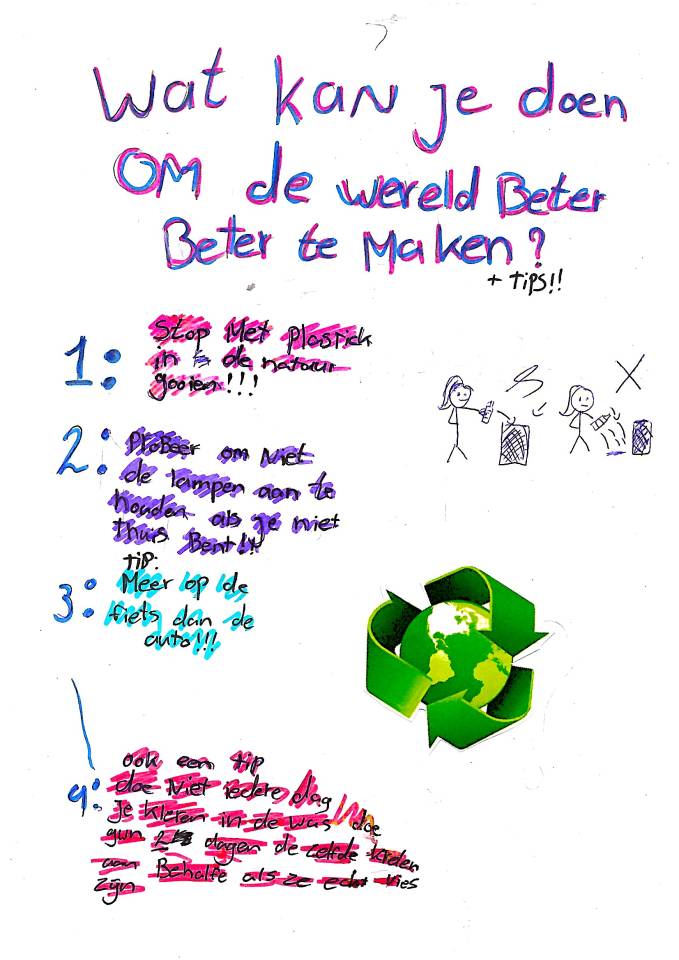 Wat kan je doen
OM de wereld Beter
Beter te Maken?
+ TIPS!!
1: Stop Met Plastick
in de natuur
gooien!!!
2: ProBeer om Niet
de lampen aan te
houden als je niet
thuis Bent!!!
TIP:
3: Meer op de
fiets dan de
auto!!!
ook een tip
4: doe Niet iedere dag
Je kleren in de was doe
gwn 2 dagen de zelfde kleren
aan Behalfe als ze echt vies
zijn